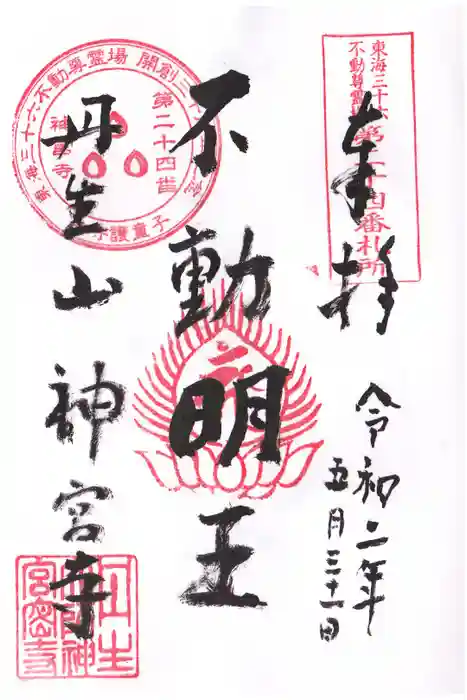 東海三十六
不動尊霊場
第二十四番札所
奉拝
令和二年
五月三十一日
不動明王
東海三十六不動尊霊場
第二十四番
神宮寺
丹生山神宮寺